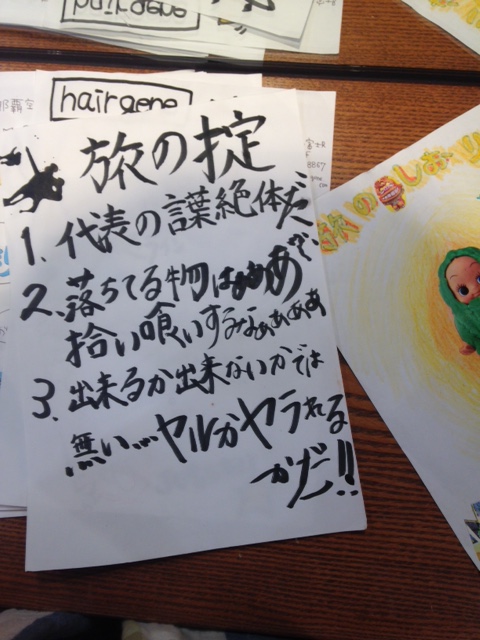 hairgene
hairgene
旅の掟
1. 代表の言葉絶体だ
2. 落ちてる物はぁぁあ
拾い喰いするなぁぁぁぁ
3. 出来るか出来ないかでは
無い…ヤルかヤラれる
かだ!!
旅のしおり